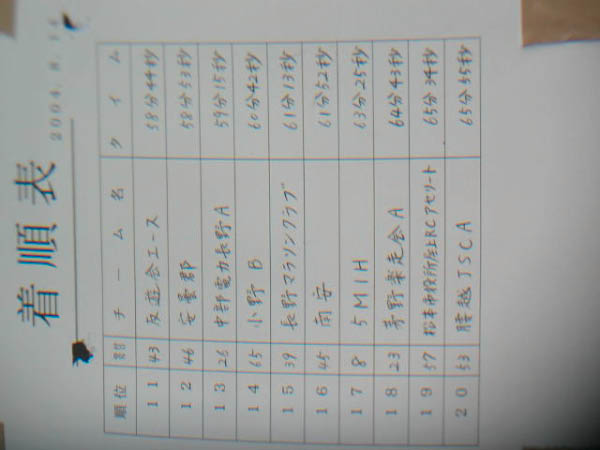 着順表
2004.8.
順位 チーム名 タイム
11 43 反遊会エース 58分44秒
12 46 安曇郡 58分53秒
13 26 中部電力長野A 59分15秒
14 65 小野B 60分42秒
15 39 長野マラソンクラブ 61分13秒
16 45 南安 61分52秒
17 8 5MIH 63分25秒
18 23 茅野楽走会A 64分43秒
19 57 松本市役所陸上RCアセリート 65分34秒
20 53 腰越JSCA 65分55秒